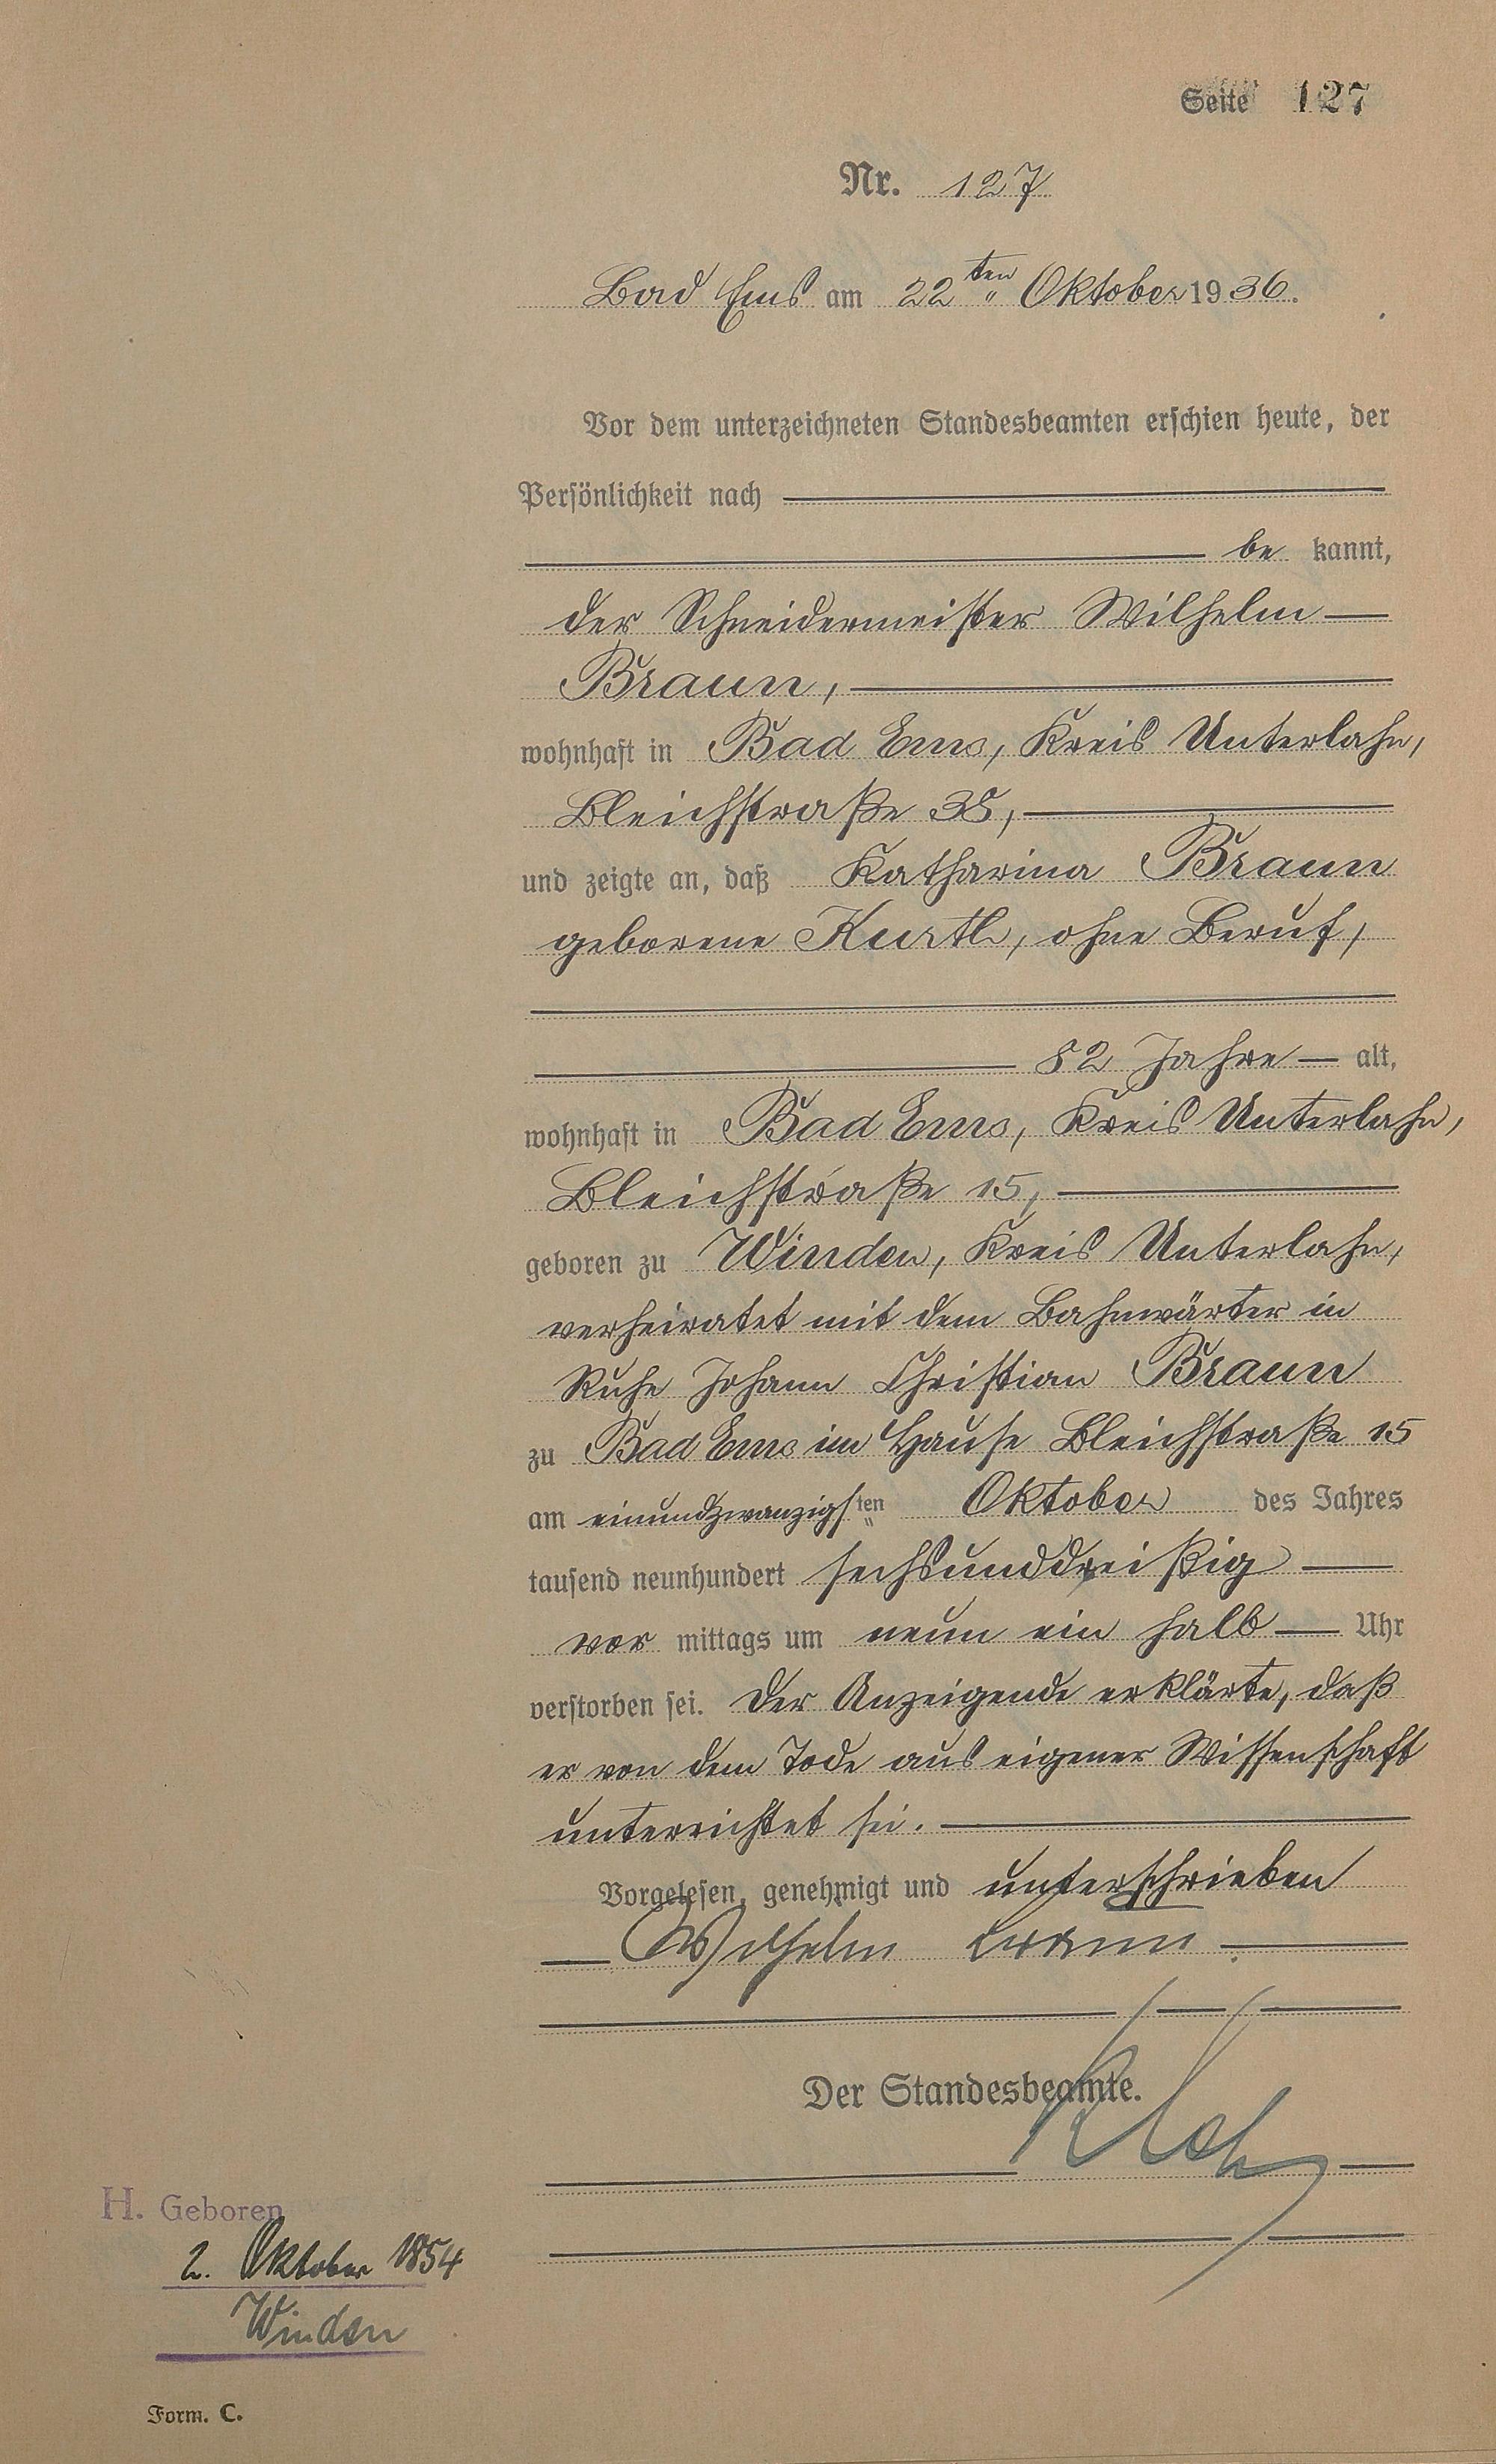 Seite 127
Nr. 127
Bad Ems am 22ten Oktober 1936.
Vor dem unterzeichneten Standesbeamten erschien heute, der
Persönlichkeit nach
be kannt,
der Schneidermeister Wilhelm
Braun,
wohnhaft in Bad Ems, Kreis Unterlahn,
Bleichstraße 38,
und zeigte an, daß Katharina Braun
geborene Kurth, ohne Beruf,
82 Jahre alt,
wohnhaft in Bad Ems, Kreis Unterlahn,
Bleichstraße 15,
geboren zu Winden, Kreis Unterlahn,
verheiratet mit dem Bahnwärter in
Ruhe Johann Christian Braun
zu Bad Ems im Hause Bleichstraße 15
am einundzwanzigsten Oktober des Jahres
tausend neunhundert sechsunddreißig
vor mittags um neun ein halb Uhr
verstorben sei. Der Anzeigende erklärte, daß
er von dem Tode aus eigener Wissenschaft
unterrichtet sei.
Vorgelesen, genehmigt und unterschrieben
Wilhelm Braun.
Der Standesbeamte.
H. Geboren
2. Oktober 1854
Winden
Form. C.